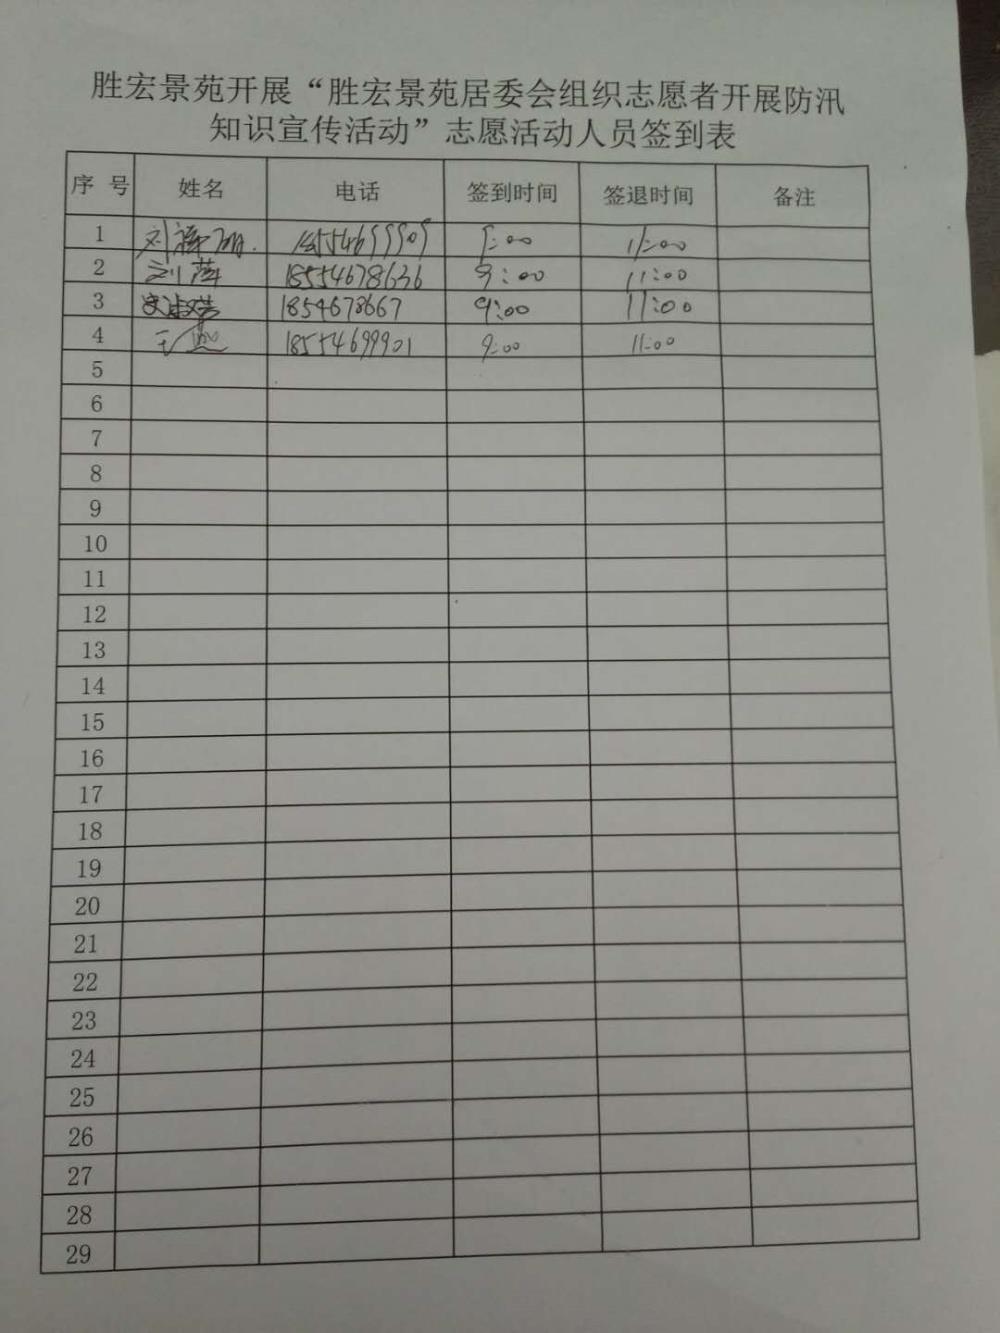 胜宏景苑开展“胜宏景苑居委会组织志愿者开展防汛
知识宣传活动”志愿活动人员签到表
序 号 姓名 电话 签到时间 签退时间 备注
1 刘 9:00 11:00
2 刘萍 18554678636 9:00 11:00
3 1854678667 9:00 11:00
4 王 18554699901 9:00 11:00
5
6
7
8
9
10
11
12
13
14
15
16
17
18
19
20
21
22
23
24
25
26
27
28
29